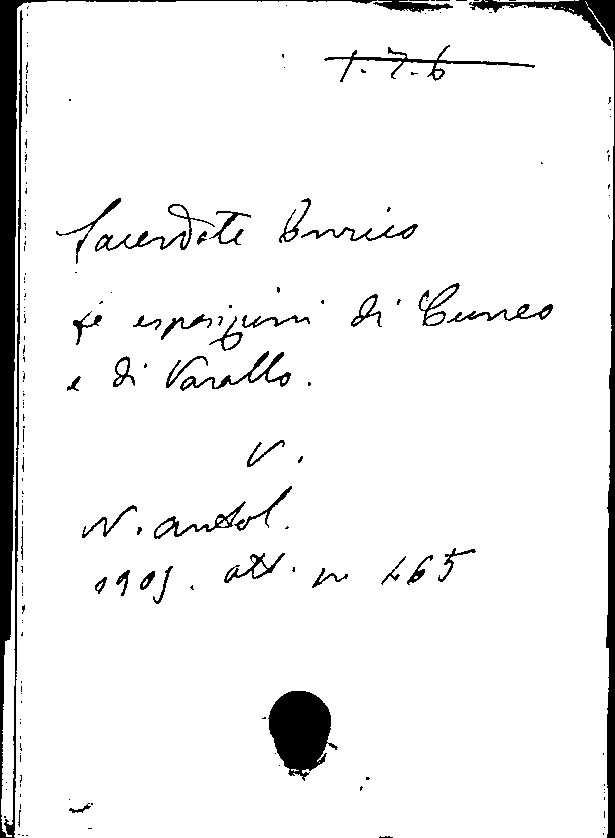 1.7.6
Sacerdote Enrico
Le esposizioni di Cuneo
e di Varallo.
V.
N. antol.
1905. ott. n. 465